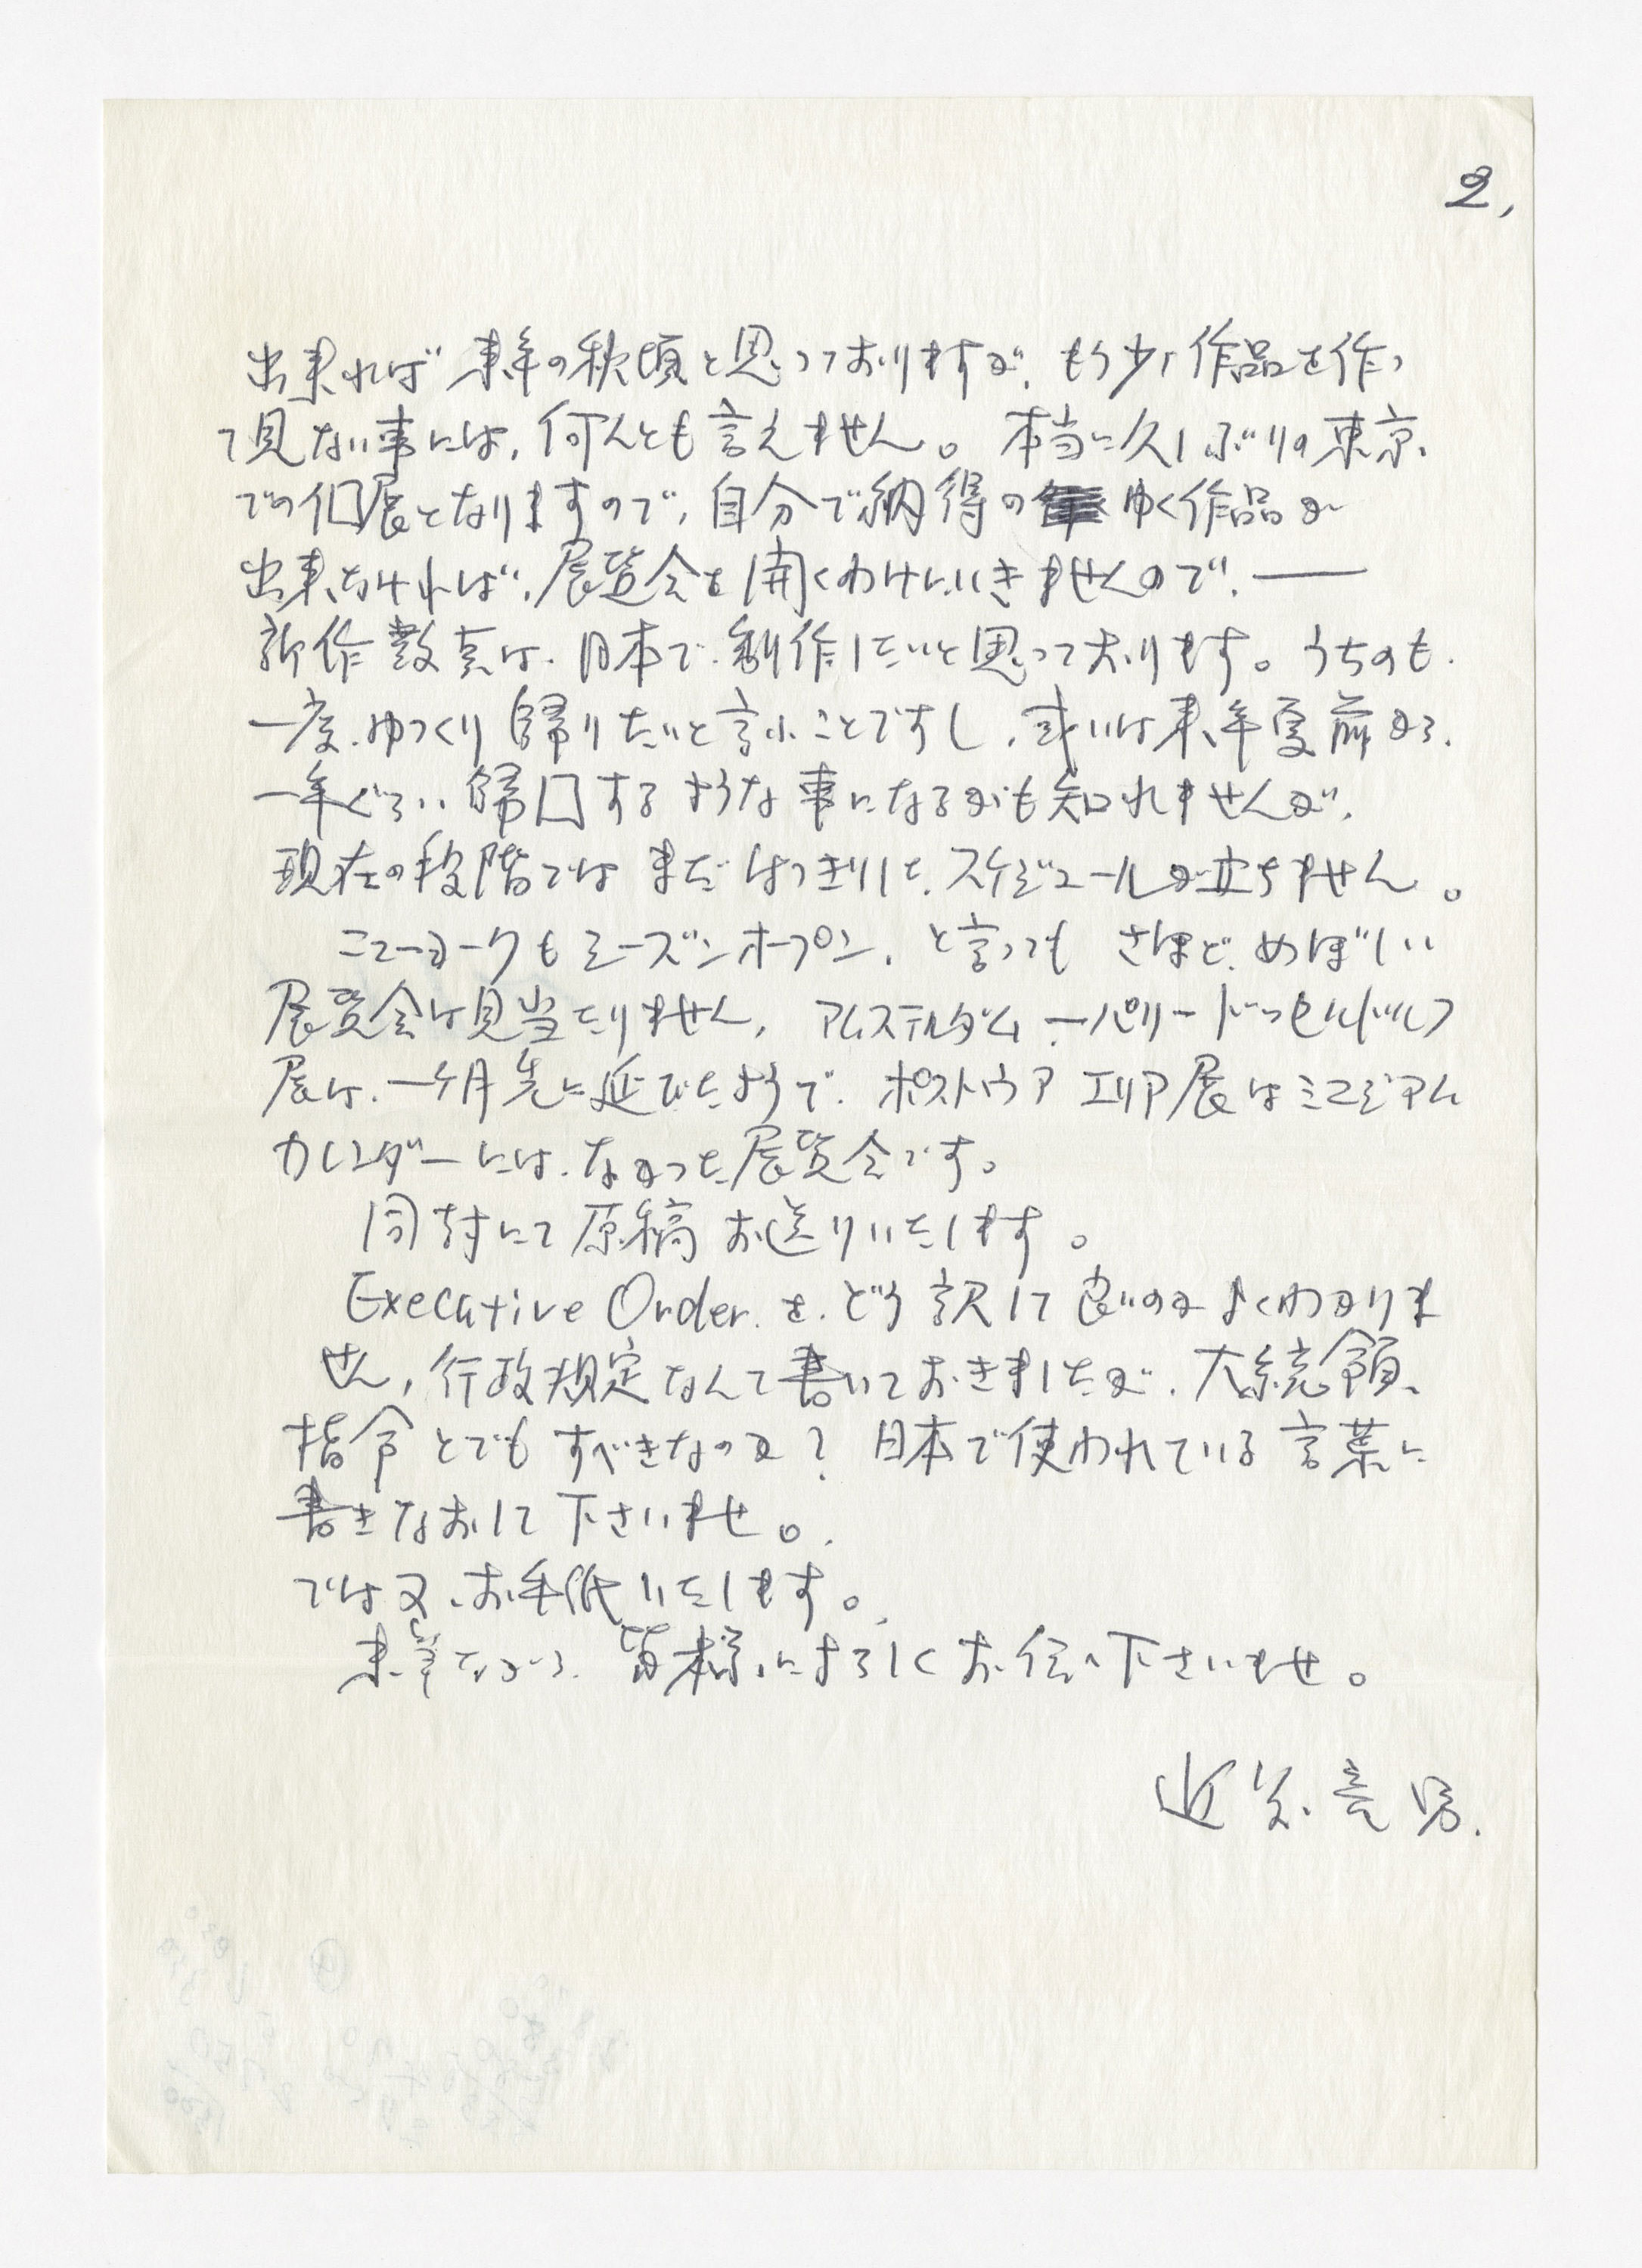 2,
出来れば来年の秋頃と思っておりますが、もう少し作品を作っ
て見ない事には、何んとも言えません。本当に久しぶりの東京、
での個展となりますので、自分で納得のゆく作品が
出来なければ、展覧会を開くわけにいきませんので、――
新作数点は、日本で制作したいと思っております。うちのも、
一度、ゆっくり帰りたいと言ふことですし、或いは来年夏前から、
一年ぐらい、帰国するような事になるかも知れませんが、
現在の段階ではまだはっきりした、スケジュールが立ちません。
ニューヨークもシーズンオープン、と言ってもさほど、めぼしい
展覧会は見当たりません、アムステルダム―パリ―ドッセルドルフ
展は、一ヶ月先に延びたようで、ポストウアエリア展はミュジアム
カレンダーには、なかった展覧会です。
同封にて原稿お送りいたします。
Executive Order を、どう訳して良いのかよくわかりま
せん、行政規定なんて書いておきましたが、大統領、
指令とでもすべきなのか?日本で使われている言葉に
書きなおして下さいませ。
では又、お手紙いたします。
末筆ながら、皆様によろしくお伝へ下さいませ。
近藤竜男.